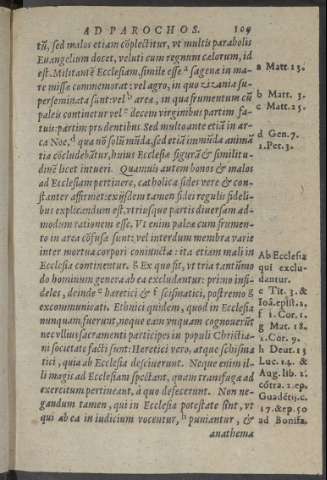 AD PAROCHOS. 109
tũ, sed malos etiam cõplectitur, vt multis parabolis
Euangelium docet, veluti cum regnum cœlorum, id
est, Militantẽ Ecclesiam, simile esse ª sagenæ in ma-
re missæ commemorat: vel agro, in quo zizania su-
perseminata sunt: vel ᵇ areæ, in qua frumentum cũ
paleis continetur vel ᶜ decem virginibus partim fa-
tuis: partim prudentibus. Sed multo ante etiã in ar-
ca Noe, ᵈ qua nõ solũ mũda, sed etiã immũda anima
tia cõcludebãtur, huius Ecclesiæ figurã & similitu-
dinẽ licet intueri. Quamuis autem bonos & malos
ad Ecclesiam pertinere, catholica fides vere & con-
stanter affirmet: exijsdem tamen fidei regulis fideli-
bus explicandum est, vtriusque partis diuersam ad-
modum rationem esse. Vt enim paleæ cum frumen-
to in area cõfusæ sunt: vel interdum membra varie
inter mortua corpori coniuncta: ita etiam mali in
Ecclesia continentur. g Ex quo fit, vt tria tantũmo
do hominum genera ab ea excludantur: primo infi-
deles, deinde ᵉ hæretici & ᶠ scismatici, postremo g
excommunicati. Ethnici quidem, quod in Ecclesia
nunquam fuerunt, neque eam vnquam cognouerũt
nec vllius sacramenti participes in populi Christia-
ni societate facti sunt: Hæretici vero, atque schisma
tici, quia ab Ecclesia desciuerunt. Neque enim il-
li magis ad Ecclesiam spectant, quam transfugæ ad
exercitum pertineant, à quo defecerunt. Non ne-
gandum tamen, quin in Ecclesiæ potestate sint, vt
qui ab ea in iudicium vocentur, ʰ puniantur, &
anathema
a Matt. 13.
b Matt. 3.
c Matt. 25.
d Gen. 7.
1. Pet. 3.
Ab Ecclesia
qui exclu-
dantur.
e Tit. 3. &
Ioã. epist. 2.
f 1. Cor. 1.
g Mat. 18.
1. Cor. 9.
h Deut. 13
Luc. 14. &
Aug. lib. 2.
cõtra. 2. ep.
Guadẽtij. c.
17. & ep. 50
ad Bonifa.